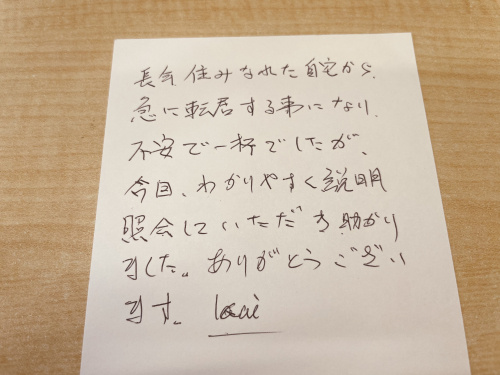 長年住みなれた自宅から、
急に転居する事になり、
不安で一杯でしたが、
今回、わかりやすく説明
照会していただき助かり
ました。ありがとうござい
ます。